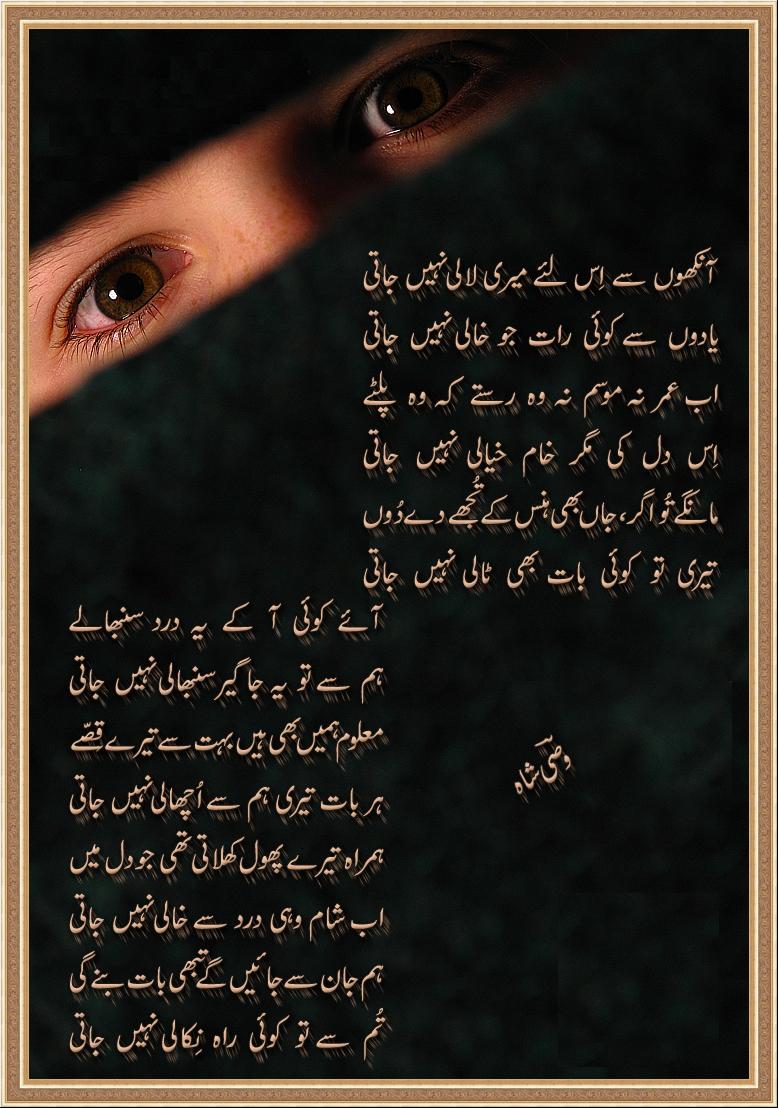 آنکھوں سے اِس لئے میری لالی نہیں جاتی
یادوں سے کوئی رات جو خالی نہیں جاتی
اب عمر نہ موسم نہ وہ رستے کہ وہ پلٹے
اِس دل کی مگر خام خیالی نہیں جاتی
مانگے تُو اگر، جاں بھی ہنس کے تُجھے دے دُوں
تیری تو کوئی بات بھی ٹالی نہیں جاتی
آئے کوئی آ کے یہ درد سنبھالے
ہم سے تو یہ جاگیر سنبھالی نہیں جاتی
معلوم ہمیں بھی ہیں بہت سے تیرے قصّے
ہر بات تیری ہم سے اُچھالی نہیں جاتی
ہمراہ تیرے پھول کھلاتی تھی جو دل میں
اب شام وہی درد سے خالی نہیں جاتی
ہم جان سے جائیں گے تبھی بات بنے گی
تُم سے تو کوئی راہ نِکالی نہیں جاتی
وصی شاہ